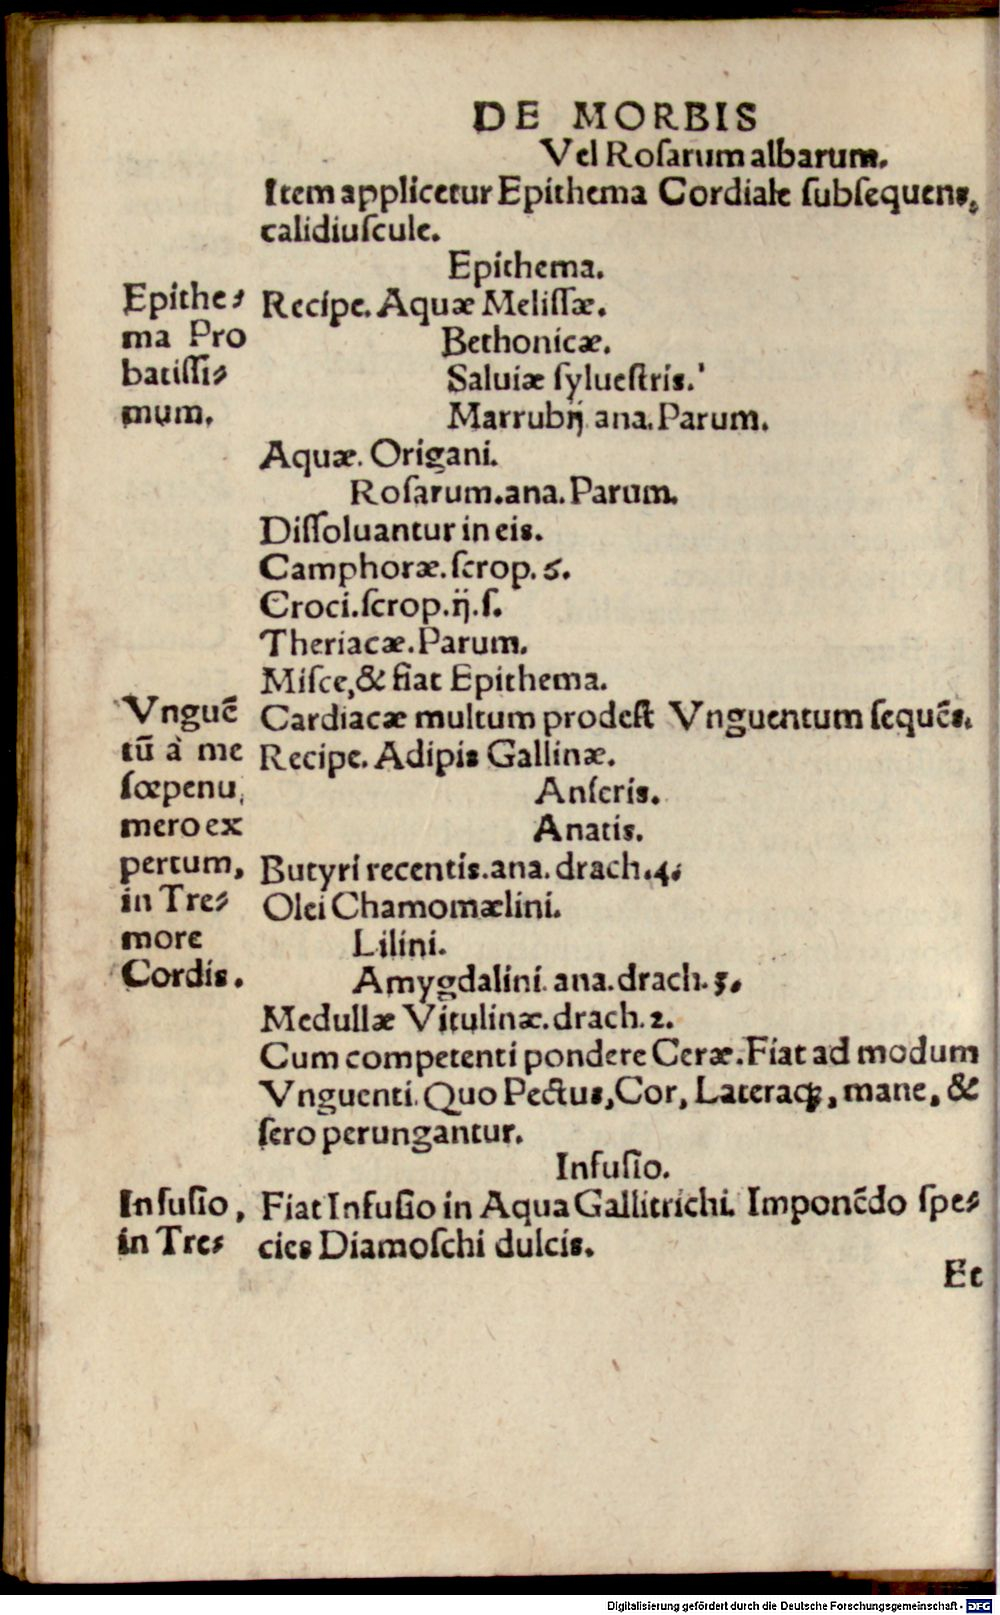 DE MORBIS
Vel Roſarum albarum.
Item applicetur Epithema Cordiale ſubſequens,
calidiuſcule.
Epithema.
Epithe⸗
ma Pro
batiſſi⸗
mum.
Recipe. Aquæ Meliſſæ.
Bethonicæ.
Saluiæ ſylueſtris.
Marrubij ana. Parum.
Aquæ. Origani.
Roſarum. ana. Parum.
Diſſoluantur in eis.
Camphoræ. ſcrop. 6.
Croci. ſcrop. ij. ſ.
Theriacæ. Parum.
Miſce, & fiat Epithema.
Vnguē
tū à me
ſœpenu
mero ex
pertum,
in Tre⸗
more
Cordis.
Cardiacæ multum prodeſt Vnguentum ſequēs.
Recipe. Adipis Gallinæ.
Anſeris.
Anatis.
Butyri recentis. ana. drach. 4.
Olei Chamomælini.
Lilini.
Amygdalini. ana. drach. 3.
Medullæ Vitulinæ. drach. 2.
Cum competenti pondere Ceræ. Fiat ad modum
Vnguenti. Quo Pectus, Cor, Lateraqꝫ, mane, &
ſero perungantur.
Infuſio.
Infuſio,
in Tre⸗
Fiat Infuſio in Aqua Gallitrichi. Imponēdo ſpe⸗
cies Diamoſchi dulcis.
Et
Digitalisierung gefördert durch die Deutsche Forschungsgemeinschaft - DFG